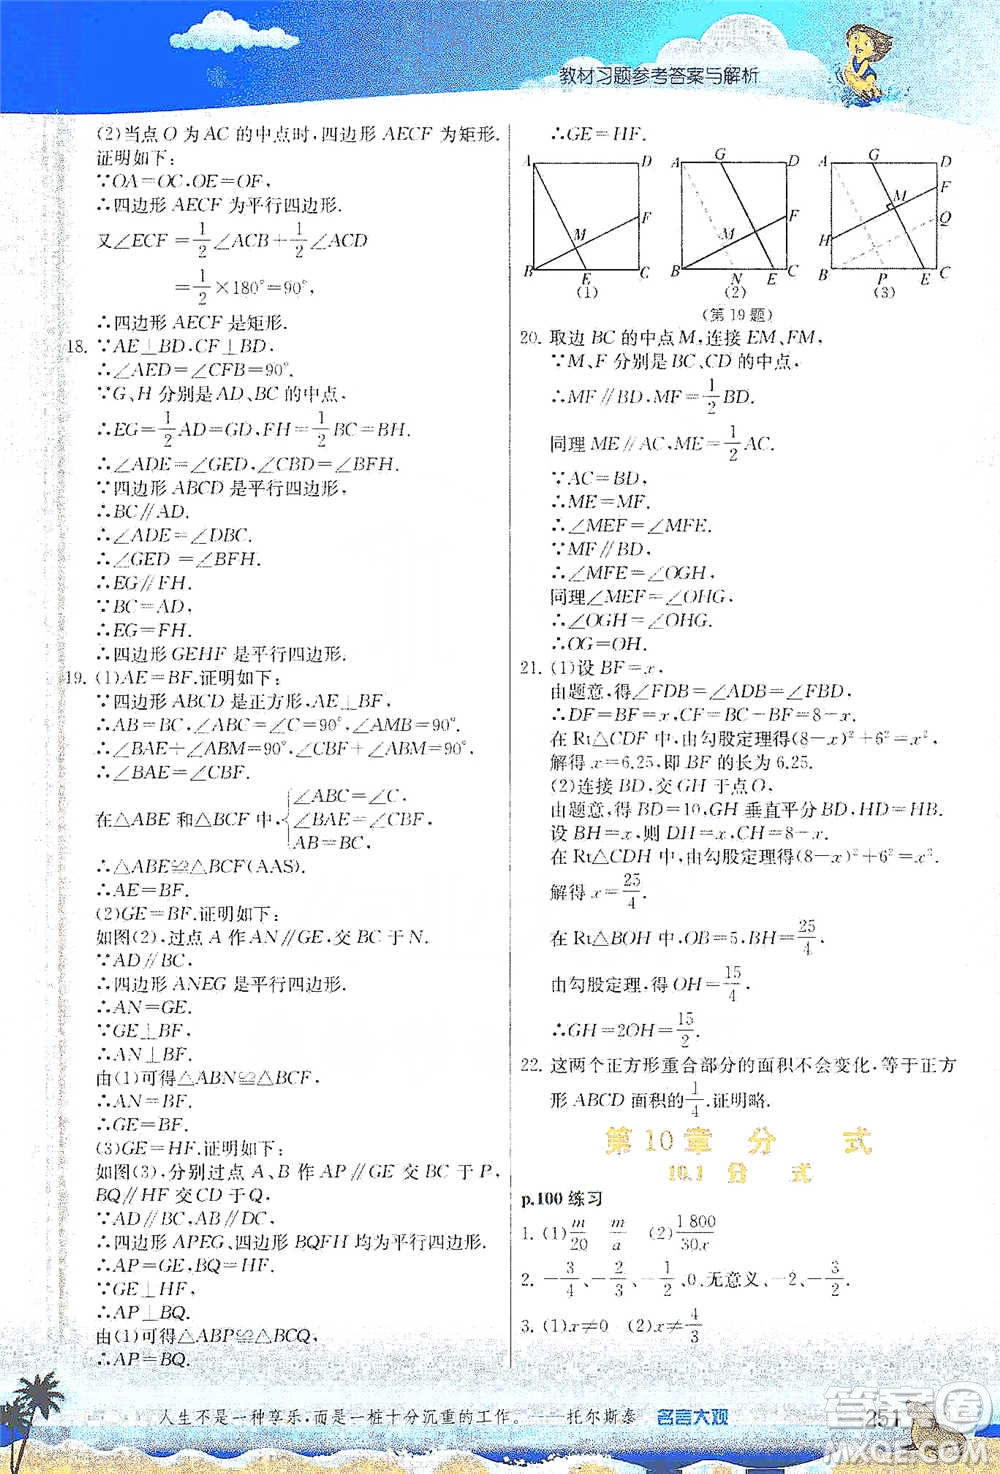 教材习题参考答案与解析
(2)当点 O 为 AC 的中点时,四边形 AECF 为矩形.
证明如下:
∵OA=OC,OE=OF,
∴四边形 AECF 为平行四边形.
又∠ECF=1/2∠ACB+1/2∠ACD
=1/2×180°=90°,
∴四边形 AECF 是矩形.
18. ∵AE⊥BD,CF⊥BD,
∴∠AED=∠CFB=90°.
∵G、H 分别是 AD、BC 的中点,
∴EG=1/2AD=GD,FH=1/2BC=BH.
∴∠ADE=∠GED,∠CBD=∠BFH.
∵四边形 ABCD 是平行四边形,
∴BC∥AD.
∴∠ADE=∠DBC.
∴∠GED=∠BFH.
∴EG∥FH.
∵BC=AD,
∴EG=FH.
∴四边形 GEHF 是平行四边形.
19. (1)AE=BF.证明如下:
∵四边形 ABCD 是正方形,AE⊥BF,
∴AB=BC,∠ABC=∠C=90°,∠AMB=90°.
∴∠BAE+∠ABM=90°,∠CBF+∠ABM=90°.
∴∠BAE=∠CBF.
在△ABE 和△BCF 中,{∠ABC=∠C,
∠BAE=∠CBF,
AB=BC,
∴△ABE≌△BCF(AAS).
∴AE=BF.
(2)GE=BF.证明如下:
如图(2),过点 A 作 AN∥GE,交 BC 于 N.
∵AD∥BC.
∴四边形 ANEG 是平行四边形.
∴AN=GE.
∵GE⊥BF,
∴AN⊥BF.
由(1)可得△ABN≌△BCF,
∴AN=BF.
∴GE=BF.
(3)GE=HF.证明如下:
如图(3),分别过点 A、B 作 AP∥GE,交 BC 于 P,
BQ∥HF 交 CD 于 Q,
∵AD∥BC,AB∥DC,
∴四边形 APEG、四边形 BQFH 均为平行四边形.
∴AP=GE,BQ=HF.
∵GE⊥HF,
∴AP⊥BQ.
由(1)可得△ABP≌△BCQ,
∴AP=BQ.
∴GE=HF.
A D F M B E C
(1)
A G D F M B N E C
(2)
A G D F M Q H B P E C
(3)
(第 19 题)
20. 取边 BC 的中点 M,连接 EM,FM,
∵M、F 分别是 BC、CD 的中点,
∴MF∥BD,MF=1/2BD.
同理 ME∥AC,ME=1/2AC.
∵AC=BD,
∴ME=MF.
∴∠MEF=∠MFE.
∵MF∥BD,
∴∠MFE=∠OGH,
同理∠MEF=∠OHG,
∴∠OGH=∠OHG.
∴OG=OH.
21. (1)设 BF=x,
由题意,得∠FDB=∠ADB=∠FBD,
∴DF=BF=x,CF=BC-BF=8-x.
在 Rt△CDF 中,由勾股定理得(8-x)²+6²=x²,
解得 x=6.25,即 BF 的长为 6.25.
(2)连接 BD,交 GH 于点 O,
由题意,得 BD=10,GH 垂直平分 BD,HD=HB.
设 BH=x,则 DH=x,CH=8-x.
在 Rt△CDH 中,由勾股定理得(8-x)²+6²=x²,
解得 x=25/4.
在 Rt△BOH 中,OB=5,BH=25/4,
由勾股定理,得 OH=15/4,
∴GH=2OH=15/2.
22. 这两个正方形重合部分的面积不会变化,等于正方
形 ABCD 面积的1/4.证明略.
第 10 章 分 式
10.1 分 式
p.100 练习
1. (1)m/20 m/a (2)1 800/30x
2. -3/4、-2/3、-1/2、0、无意义、-2、-3/2.
3. (1)x≠0 (2)x≠4/3
人生不是一种享乐,而是一桩十分沉重的工作。——托尔斯泰 名言大观
251
答案圈
MXQE.COM